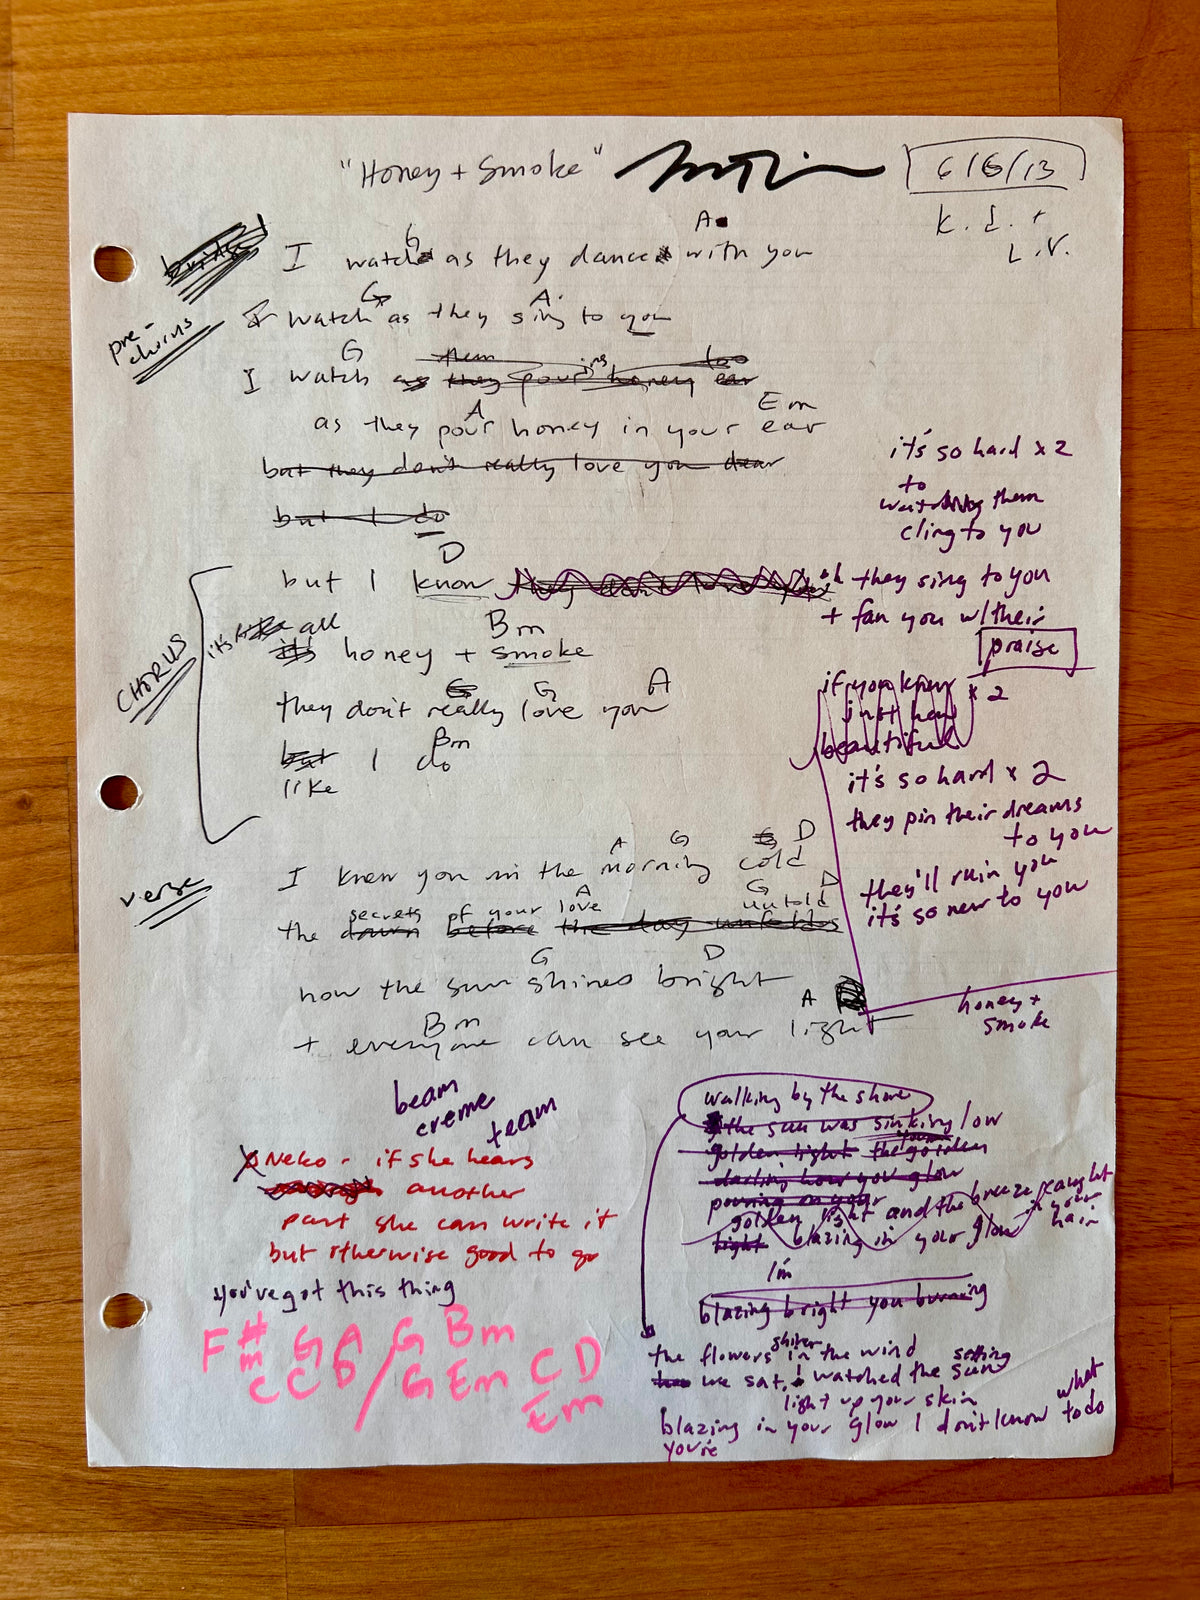 "Honey + Smoke"
6/6/13
K. I. +
L.V.
bridge
G A
I watch as they dance with you
pre-chorus
G A
I watch as they sing to you
G them ing too
I watch as they pour honey ear
A Em
as they pour honey in your ear
but they don't really love you dear
but I do
D
but I know they don't love you
CHORUS
it's all Bm
it's honey + smoke
G G A
they don't really love you
Bm
but I do
like
verse
A G G D
I knew you in the morning cold
secrets of your love untold
A G D
the dawn before the day unfolds
G D
how the sun shines bright
Bm A
+ everyone can see your light
it's so hard x 2
to
watching them
cling to you
oh they sing to you
+ fan you w/ their
praise
if you knew x 2
just how
beautiful
it's so hard x 2
they pin their dreams
to you
they'll ruin you
it's so new to you
honey +
smoke
beam
creme
team
Neko - if she hears
another
part she can write it
but otherwise good to go
you've got this thing
F#m G A / G Bm
C C D G Em C D
Em
walking by the shore
the sun was sinking low
golden light the golden
darling how you glow
pouring on your
golden light and the breeze caught
in your hair
light blazing in your glow
I'm
blazing bright you burning
shiver
the flowers in the wind
setting
we sat, I watched the sun
light up your skin
what
blazing in your glow I don't know to do
you're